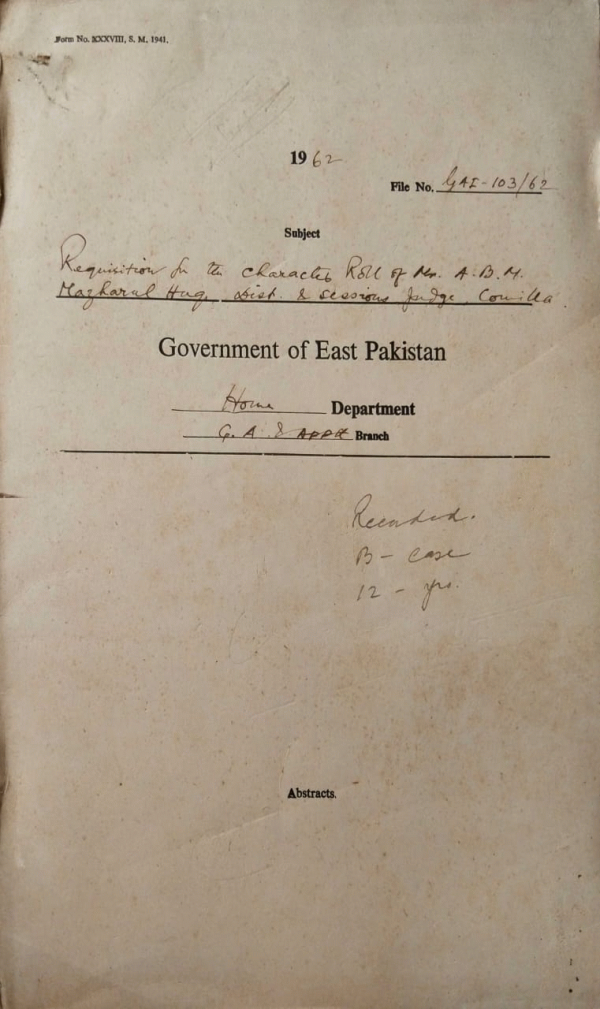 Form No. XXXVIII, S. M. 1941.
1962
File No. GAI-103/62
Subject
Requisition for the character Roll of Mr. A.B.M.
Mazharul Huq, Dist. & Sessions Judge, Comilla.
Government of East Pakistan
Home Department
G. A. & Appt Branch
Recorded.
B - case
12 - yrs.
Abstracts.